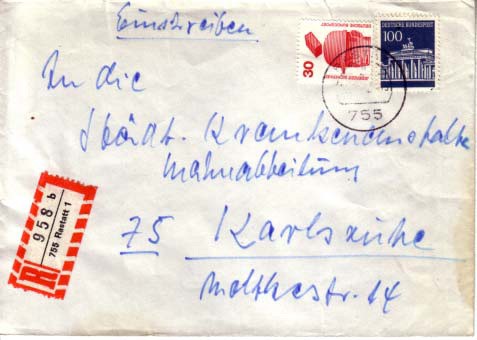 Einschreiben
30
DEUTSCHE BUNDESPOST
DEUTSCHE BUNDESPOST
100
755
An die
Städt. Krankenanstalten
Mahnabteilung
75 Karlsruhe
Moltkestr. 14
R
958 b
755 Rastatt 1